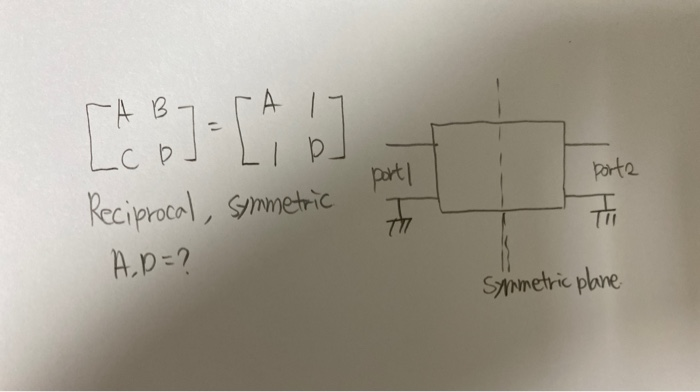 [A B
C D] = [A 1
1 D]
Reciprocal, symmetric
A, D = ?
port1
port2
symmetric plane.